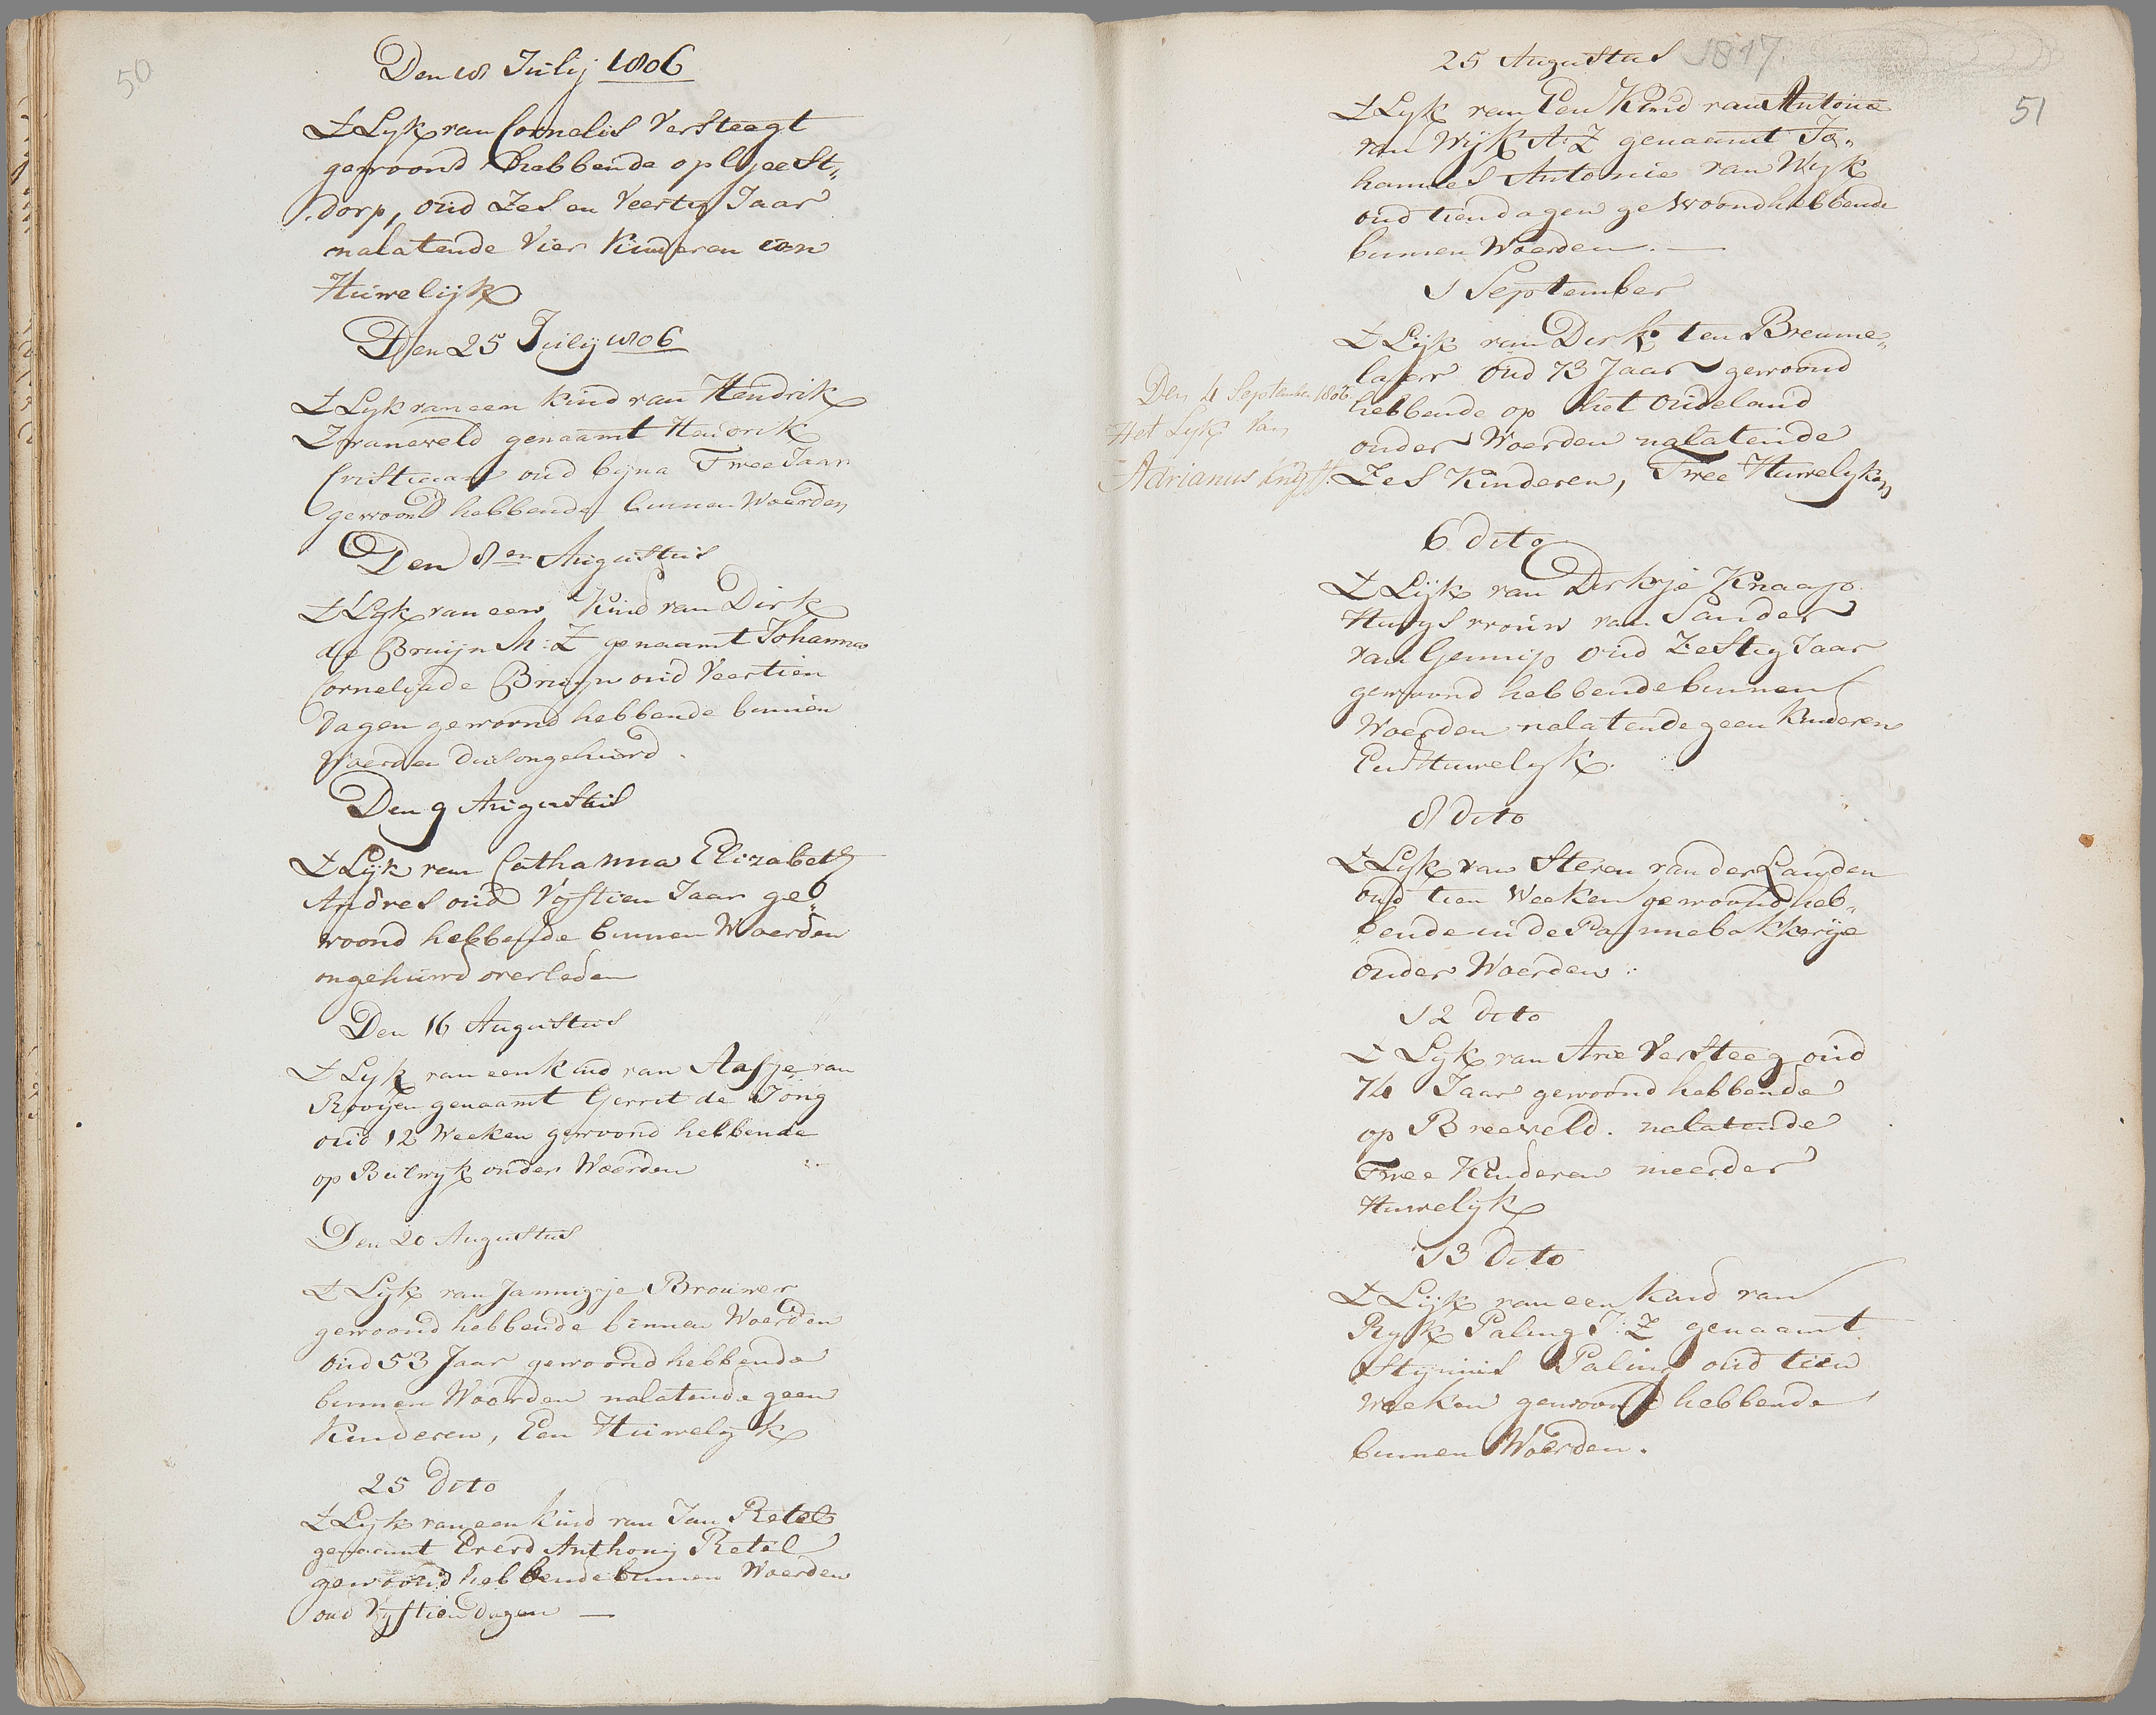 50
Den 18 Julij 1806
T Lyk van Cornelis Versteegt
gewoond hebbende op Geest„
dorp, oud Zes en Veertig Jaar
nalatende Vier Kinderen een
Huwelijk
Den 25 Julij 1806
T Lyk van een kind van Hendrik
Zwaneveld genaamt Hendrik
Cristiaan oud byna Twee Jaar
gewoond hebbende binnen Woerden
Den 8en Augustus
T Lyk van een Kind van Dirk
de Bruijn M:Z genaamt Johanna
Cornelia de Bruijn oud Veertien
Dagen gewoond hebbende binnen
Woerden dus ongehuwd.
Den 9 Augustus
T Lijk van Catharina Elizabeth
Andres oud Vyftien Jaar ge„
woond hebbende binnen Woerden
ongehuwd overleden
Den 16 Augustus
T Lyk van een kind van Aafje van
Rooijen genaamt Gerrit de Jong
oud 12 Weeken gewoond hebbende
op Bulwyk onder Woerden
Den 20 Augustus
T Lyk van Jannigje Brouwer
gewoond hebbende binnen Woerden
oud 53 Jaar gewoond hebbende
binnen Woerden nalatende geen
Kinderen, Een Huwelyk
25 dito
T Lyk van een kind van Jan Retel
genaamt Everd Anthony Retel
gewoond hebbende binnen Woerden
oud Vyftien dagen —
51
25 Augustus 1817.
T Lyk van Een Kind van Antonie
van Wijk A:Z genaamt Jo„
hannes Antonie van Wyk
oud tien dagen gewoond hebbende
binnen Woerden. —
1 September
T Lijk van Dirk ten Breume„
laer oud 73 Jaar gewoond
hebbende op het Oudeland
onder Woerden nalatende
Zes Kinderen, Twee Huwelyken
Den 4 September 1806
Het Lyk van
Adrianus
6 dito
T Lijk van Dirkje Knaap
Huysvrouw van Sander
van Gennip oud Zestig Jaar
gewoond hebbende binnen
Woerden nalatende geen kinderen
Een Huwelyk.
8 dito
T Lyk van Steven van der Landen
oud tien Weeken gewoond heb„
bende in de Pannebakkerije
onder Woerden:
12 dito
T Lyk van Arie Versteeg oud
74 Jaar gewoond hebbende
op Breeveld. nalatende
Twee Kinderen meerder
Huwelyk
13 dito
T Lijk van een kind van
Ryk Paling J:Z genaamt
Stijnius Paling oud tien
weeken gewoond hebbende
binnen Woerden.